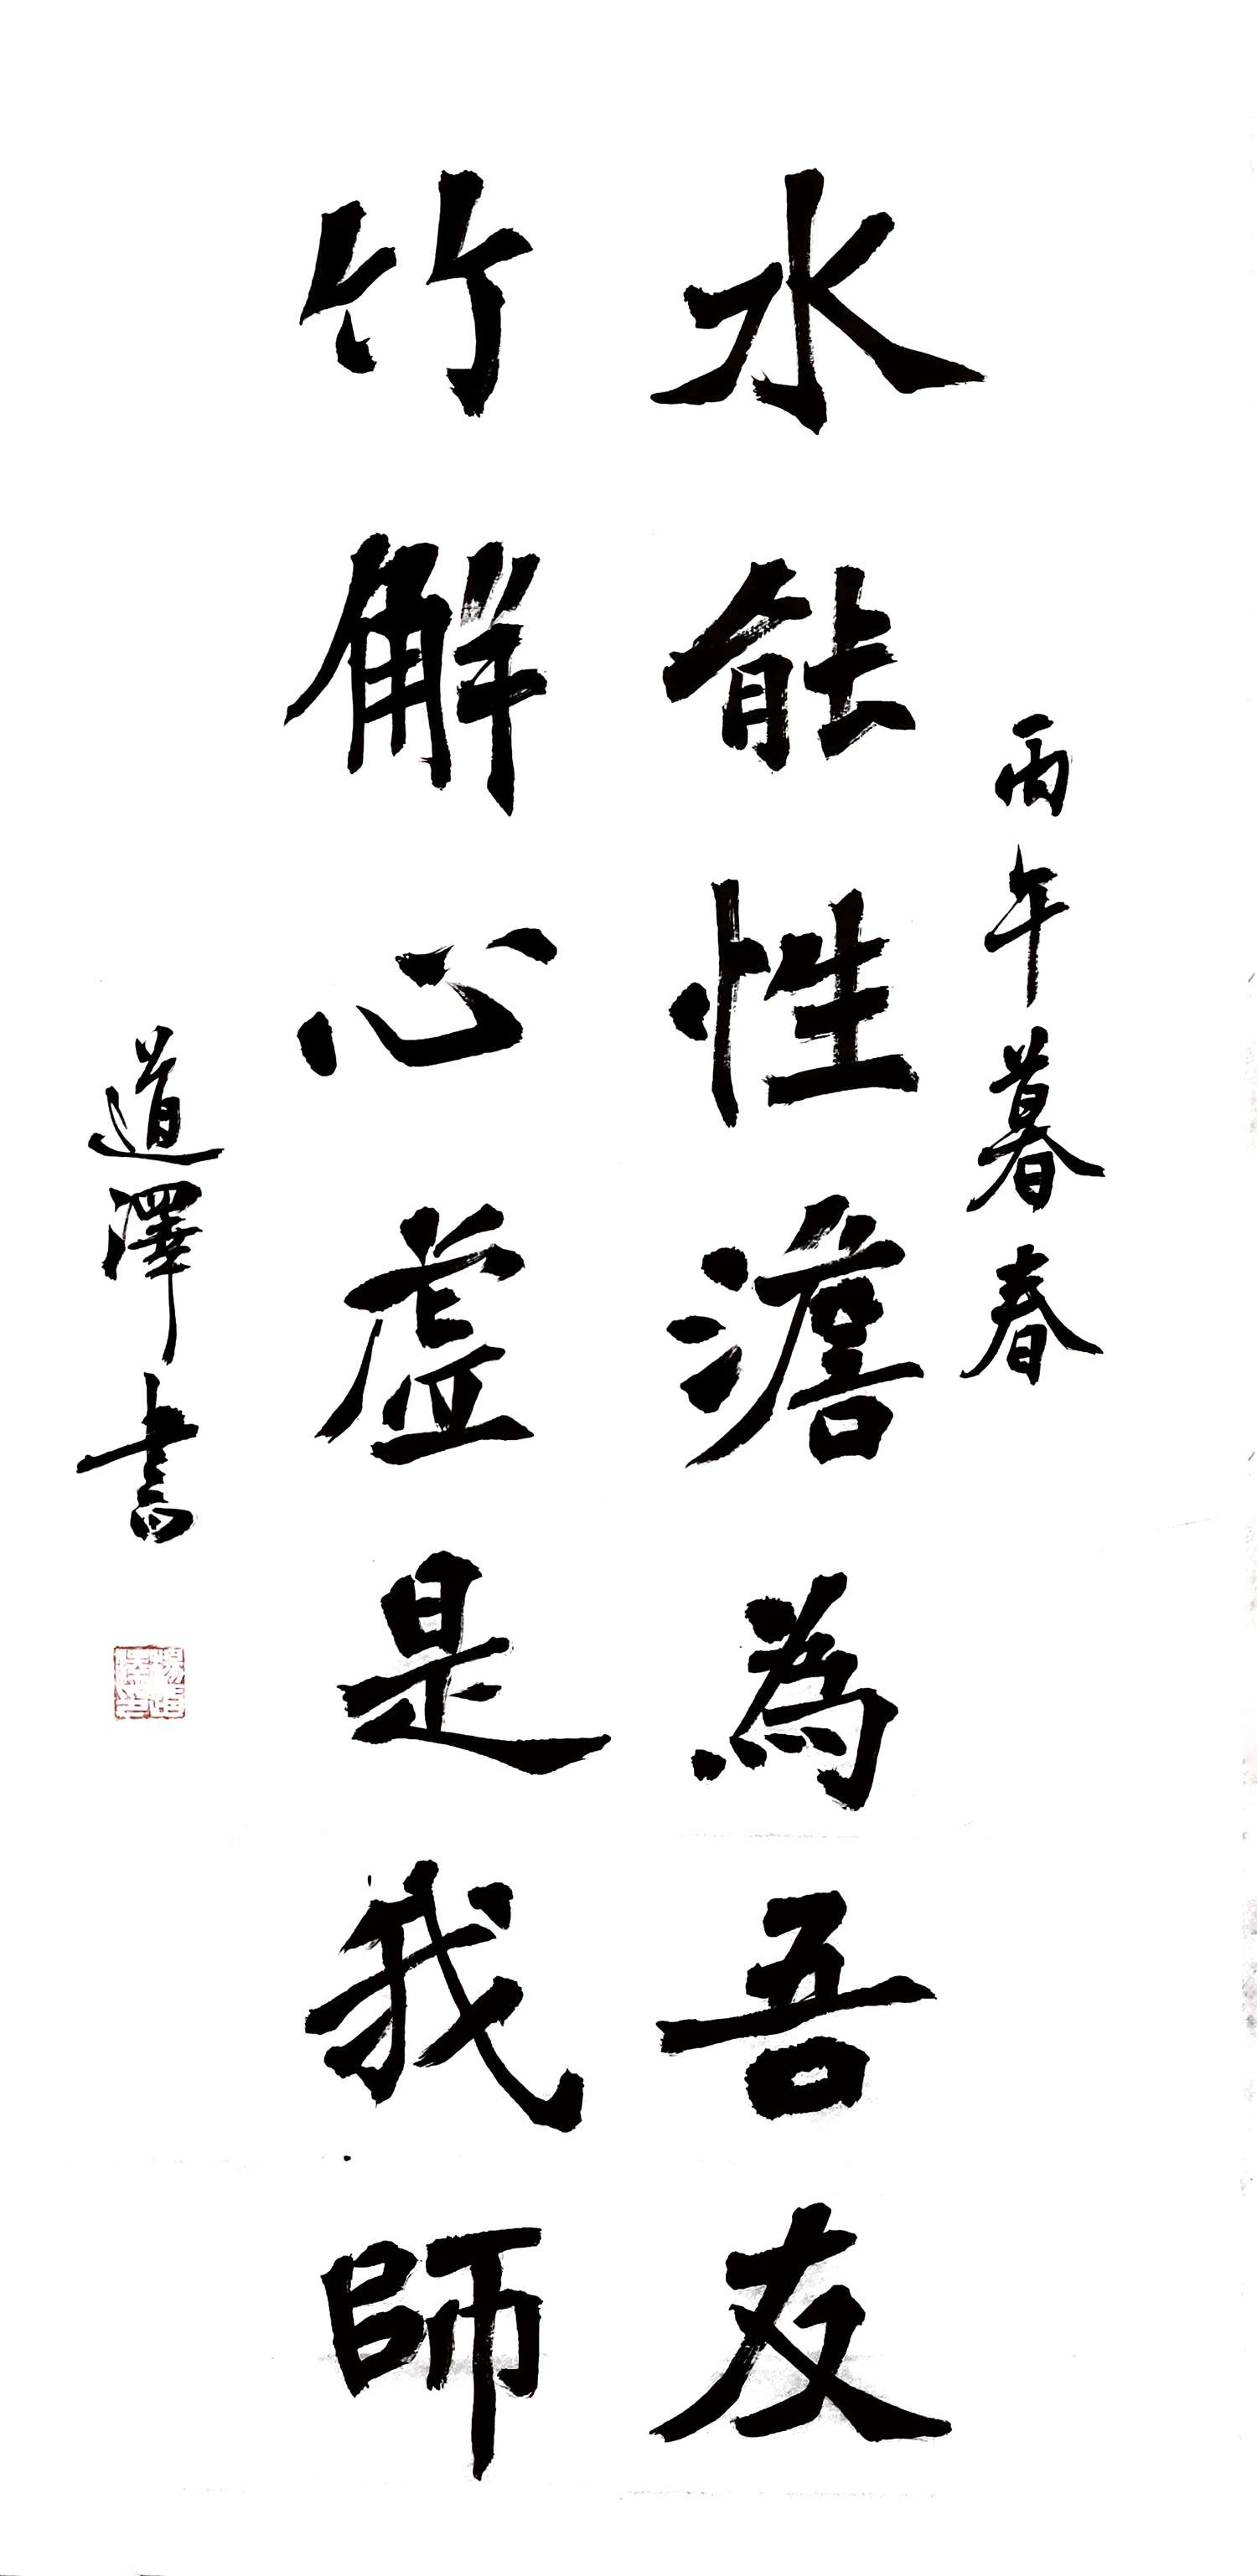 丙午暮春
水能性澹為吾友
竹解心虛是我師
道澤書